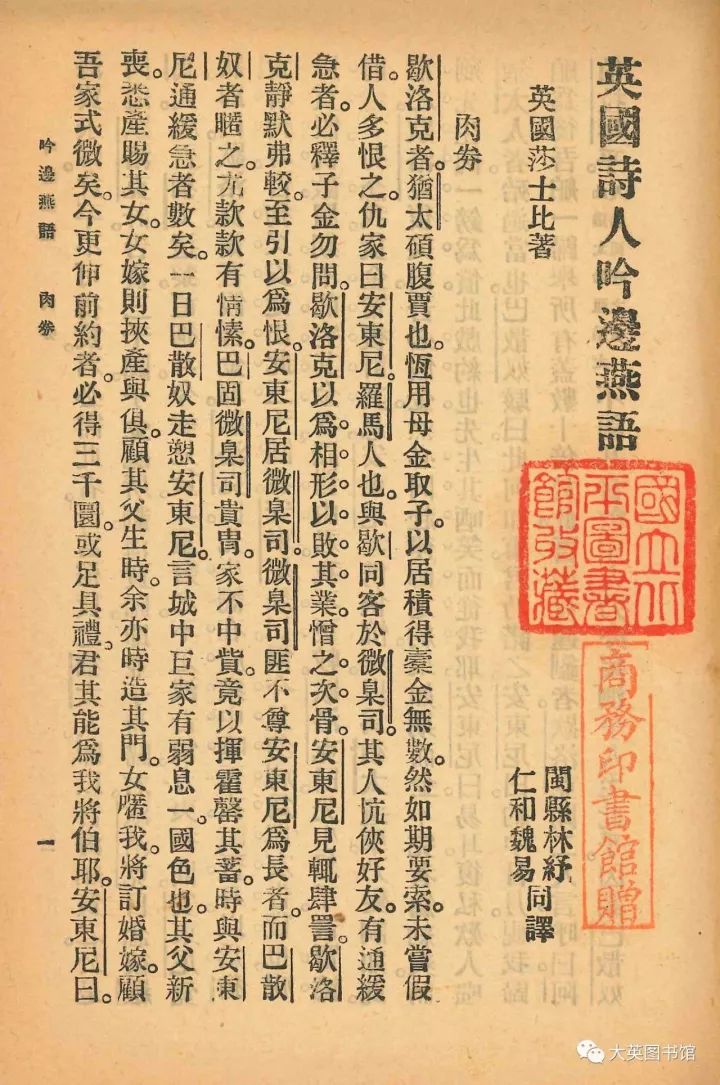 英國詩人吟邊燕語
國立北
平圖書
館收藏
商務印書館贈
英國莎士比著
閩縣林紓
仁和魏易同譯
肉劵
歇洛克者。猶太碩腹賈也。恆用母金取子。以居積得橐金無數。然如期要索。未嘗假
借。人多恨之。仇家曰安東尼。羅馬人也。與歇同客於微臬司。其人忼俠好友。有通緩
急者。必釋子金勿問。歇洛克以爲相形以敗其業。憎之次骨。安東尼見輒肆詈。歇洛
克靜默弗較。至引以爲恨。安東尼居微臬司。微臬司匪不尊安東尼爲長者。而巴散
奴者暱之。尤款款有情愫。巴固微臬司貴胄。家不中貲。竟以揮霍罄其蓄。時與安東
尼通緩急者數矣。一日巴散奴走愬安東尼。言城中巨家有弱息一。國色也。其父新
喪。悉產賜其女。女嫁則挾產與俱。顧其父生時。余亦時造其門。女暱我。將訂婚嫁。顧
吾家式微矣。今更伸前約者。必得三千圜。或足具禮。君其能爲我將伯耶。安東尼曰。
吟邊燕語 肉劵 一
大英图书馆